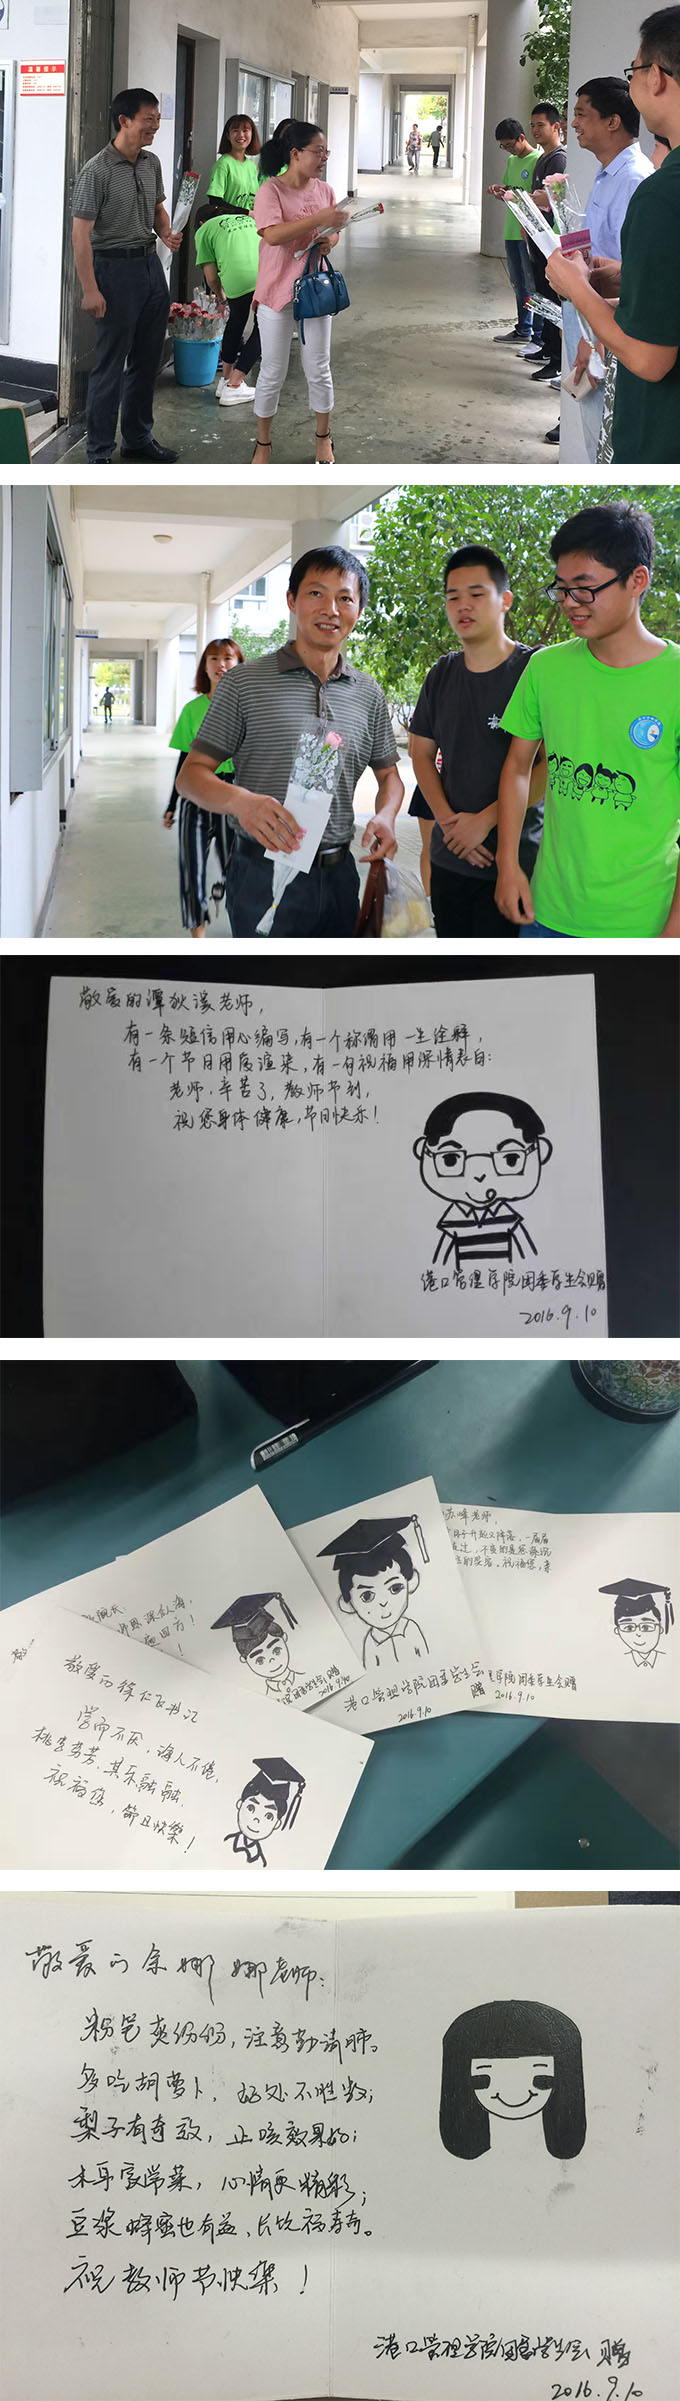 温馨提示
敬爱的谭狄溪老师,
有一条短信用心编写,有一个称谓用一生诠释,
有一个节日用爱渲染,有一句祝福用深情表白:
老师,辛苦了,教师节到,
祝您身体健康,节日快乐!
港口管理学院团委学生会赠
2016.9.10
老师,
祝福您,
2016.9.10
港口管理学院团委学生会
赠
2016.9.10
学院团委学生会赠
2016.9.10
敬爱的徐仁飞书记
学而不厌,诲人不倦,
桃李芬芳,其乐融融,
祝福您,节日快樂!
敬爱的余娜娜老师:
粉笔灰纷纷,注意勤清肺。
多吃胡萝卜,好处不胜数;
梨子有奇效,止咳效果好;
木耳家常菜,心情更精彩;
豆浆蜂蜜也有益,长饮福寿奇。
祝教师节快樂!
港口管理学院团委学生会 赠
2016.9.10